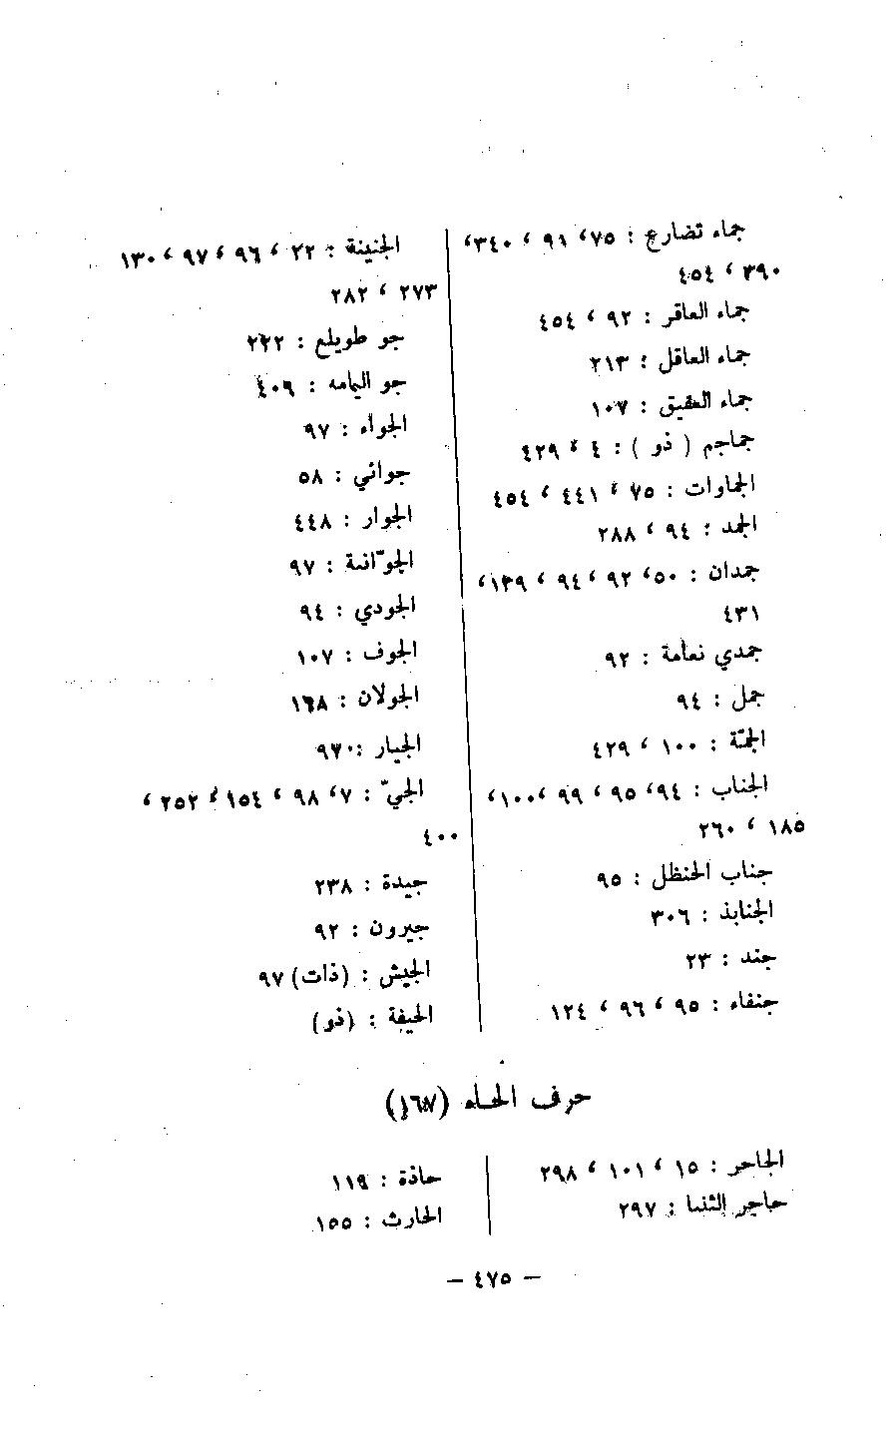 جماء تضارع : ٧٥، ٩١ ، ٣٤٠،
٣٩٠ ، ٤٥٤
جماء العاقر : ٩٢ ، ٤٥٤
جماء العاقل : ٢١٣
جماء العقيق : ١٠٧
جماجم ( ذو ) : ٤ ، ٤٢٩
الجماوات : ٧٥ ، ٤٤١ ، ٤٥٤
الجمد : ٩٤ ، ٢٨٨
جمدان : ٥٠، ٩٢ ، ٩٤ ، ١٣٩،
٤٣١
جمدي نعامة : ٩٢
جمل : ٩٤
الجمّة : ١٠٠ ، ٤٢٩
الجناب : ٩٤، ٩٥ ، ٩٩ ،١٠٠،
١٨٥ ، ٢٦٠
جناب الحنظل : ٩٥
الجنابذ : ٣٠٦
جند : ٢٣
جنفاء : ٩٥ ، ٩٦ ، ١٢٤
الجنينة : ٢٢ ، ٩٦ ، ٩٧ ، ١٣٠
٢٧٣ ، ٢٨٢
جو طويلع : ٢٢٢
جو اليامه : ٤٠٦
الجواء : ٩٧
جواثي : ٥٨
الجوار : ٤٤٨
الجوّانية : ٩٧
الجودي : ٩٤
الجوف : ١٠٧
الجولان : ١٦٨
الجيار :
الجيّ : ٧، ٩٨ ، ١٥٤ ، ٢٥٢ ،
٤٠٠
جيدة : ٢٣٨
جيرون : ٩٢
الجيش : (ذات) ٩٧
الحيفة : (ذو)
حرف الحاء (١٦٧)
الجاحر : ١٥ ، ١٠١ ، ٢٩٨
حاجر الثنيا : ٢٩٧
حاذة : ١١٩
الحارث : ١٥٥
— ٤٧٥ —